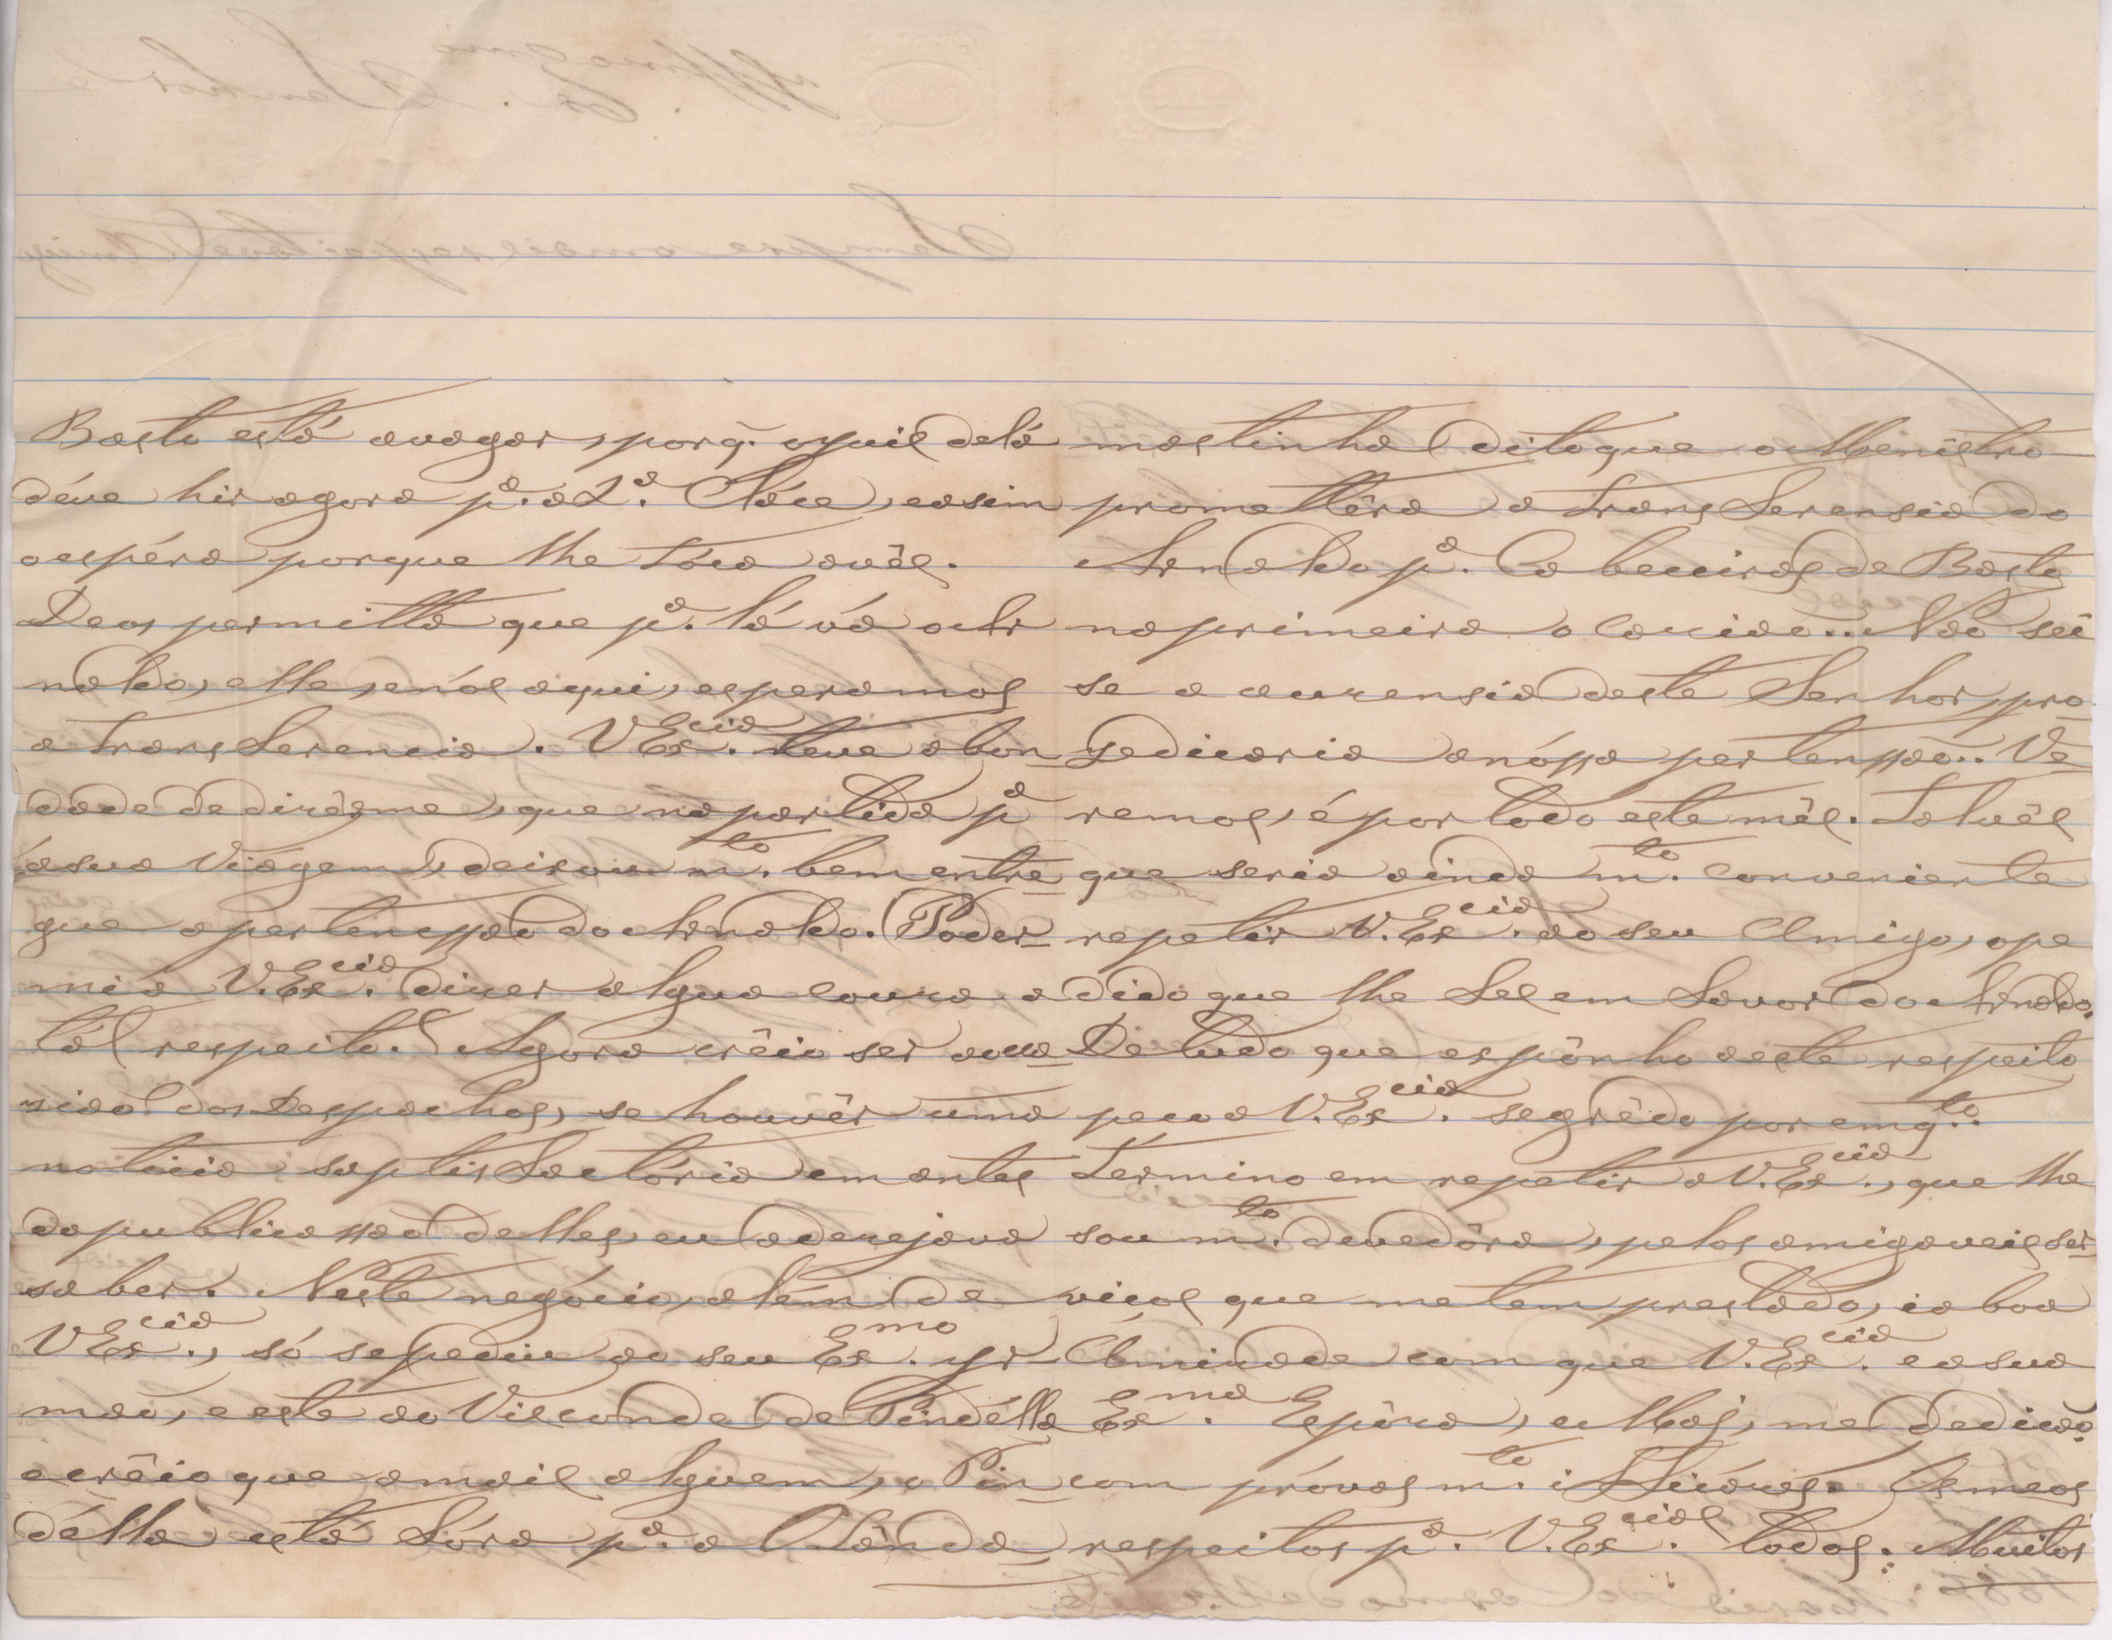 Basto está avagar, porq. ojuis delá
déve hir agora pª. a 2ª. Cláce, easim
oespéra porque lhe tóca avês.
Deos permitta que pª. lá vá oAr
naldo, elle, enós aqui, esperamos
a transferencia. VExcia. teve abon
dade dedirésme, que napartida pª
ásua Viagem, deixou mto. bem entre
gue apertencção do Arnaldo. Poder
miá V.Excia. dizer algua couza a
tál respeito. Agora crêio ser aocca
zião dos Despachos, se houvér uma
noticia saptisfactória em antes
dapublicassão delles, eu adezejava
saber. Neste negócio, além de
VExcia., só sepediu ao seu Exmo. Ir
mão, e este ao Visconde de Pindélla
ecrêio que amais alguem, o Pin
délla está fóra pª. a Olânda
mastinha dito que o Menistro
promettêra a transferensia do
Arnaldo pª. Cabeceiras de Basto
naprimeira ocazião... Não sei
se a auzensia deste Senhor, pro
gedicaria anóssa pertenssão.. Ve
remos, é por todo este mês. Talvês
que seria ainda mto. conveniente
repetir V.Excia. ao seu Amigo, ope
dido que lhe fes em favor do Arnaldo.
De tudo que espônho aeste respeito
peço a V.Excia. segrêdo por emqto.
Termino em repetir a V.Excia., que lhe
sou mto. devedôra, pelos amigaveis ser
viços que metem prestado, ia boa
Àmizade com que V.Excia. ea sua
Exma. Espôza, e Mães, me dedicão,
com próvas mte. ifficázes. Os meos
respeitos pª. V.Excias. todos. Muitos